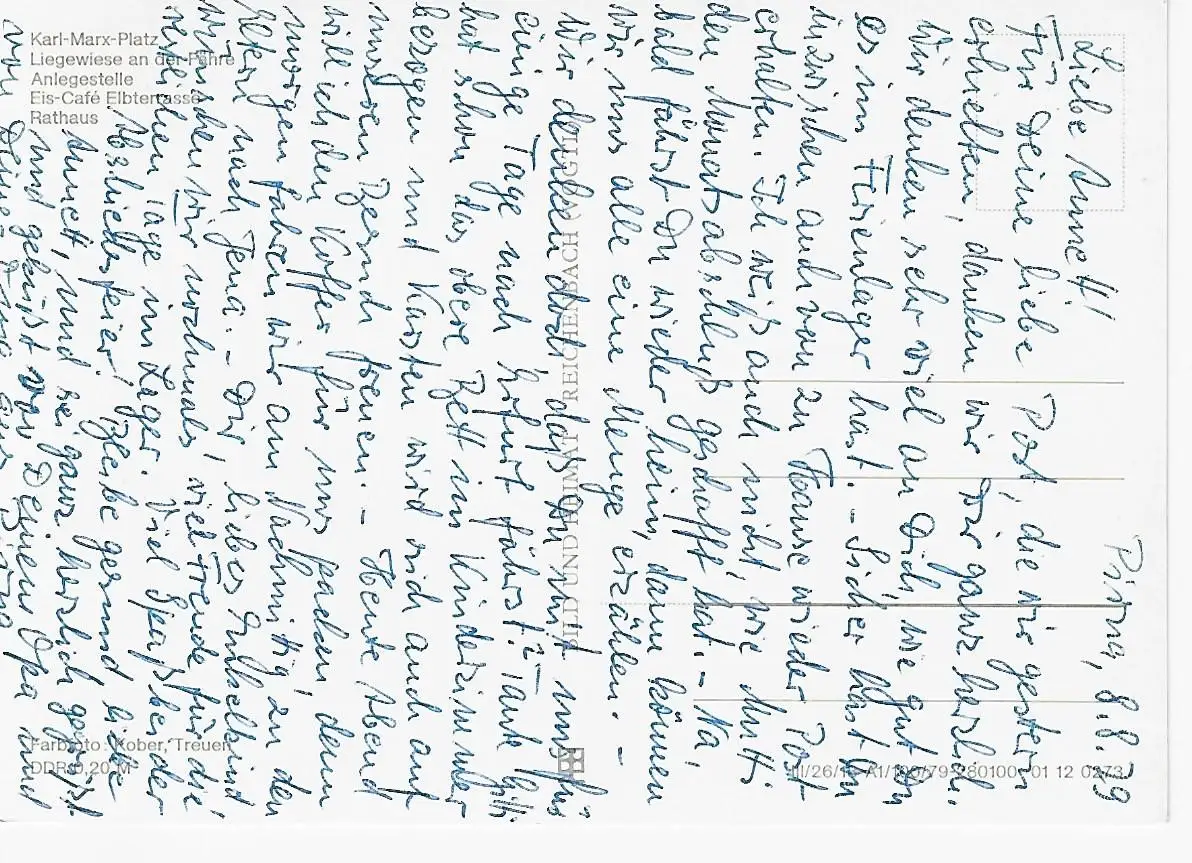 Karl-Marx-Platz
Liegewiese an der Fähre
Anlegestelle
Eis-Café Elbterrasse
Rathaus
BILD UND HEIMAT REICHENBACH (VOGTL)
Farbfoto: Kober, Treuen
DDR 0,20 M
III/26/13 A1/100/79 280100 01 12 0273
Pirna, 8.8.79
Liebe Annett!
Für Deine liebe Post, die wir gestern
erhielten, danken wir Dir ganz herzlich.
Wir denken sehr viel an Dich, wie gut Du
es im Ferienlager hast. – Sicher hast Du
inzwischen auch von zu Hause wieder Post
erhalten. Ich weiß auch nicht, wie Mutti
den Monatsabschluß geschafft hat. – Na,
bald fährst Du wieder heim, dann können
wir uns alle eine Menge erzählen. –
Wir denken doch, daß Du mit uns für
einige Tage nach Erfurt fährst?
Tante Gitti
hat schon das obere Bett im Kinderzimmer
bezogen und Karsten wird sich auch auf
unseren Besuch freuen. – Heute Abend
will ich den Koffer für uns packen, denn
morgen fahren wir am Nachmittag zu den
Eltern nach Jena. – Dir, liebes Enkelkind
wünschen wir nochmals, viel Freude für die
restlichen Tage im Lager. Viel Spaß bei der
Abschlußfeier! Bleibe gesund, liebe
Annett, und sei ganz herzlich gegrüßt
und geküßt von Deinem Opa und
von Deiner Oma aus Pirna